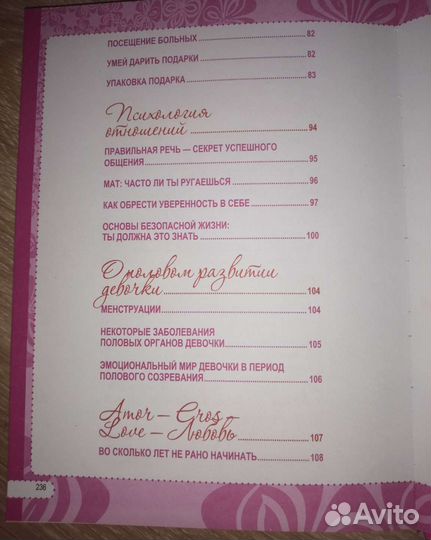 ПОСЕЩЕНИЕ БОЛЬНЫХ 82
УМЕЙ ДАРИТЬ ПОДАРКИ 82
УПАКОВКА ПОДАРКА 83
Психология
отношений 94
ПРАВИЛЬНАЯ РЕЧЬ — СЕКРЕТ УСПЕШНОГО
ОБЩЕНИЯ 95
МАТ: ЧАСТО ЛИ ТЫ РУГАЕШЬСЯ 96
КАК ОБРЕСТИ УВЕРЕННОСТЬ В СЕБЕ 97
ОСНОВЫ БЕЗОПАСНОЙ ЖИЗНИ:
ТЫ ДОЛЖНА ЭТО ЗНАТЬ 100
О половом развитии
девочки 104
МЕНСТРУАЦИИ 104
НЕКОТОРЫЕ ЗАБОЛЕВАНИЯ
ПОЛОВЫХ ОРГАНОВ ДЕВОЧКИ 105
ЭМОЦИОНАЛЬНЫЙ МИР ДЕВОЧКИ В ПЕРИОД
ПОЛОВОГО СОЗРЕВАНИЯ 106
Amor — Eros —
Love — Любовь 107
ВО СКОЛЬКО ЛЕТ НЕ РАНО НАЧИНАТЬ 108
236
Avito